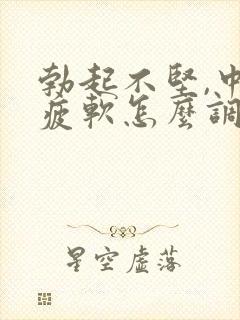 勃起不堅,中
疲軟怎麼調
星空虛落